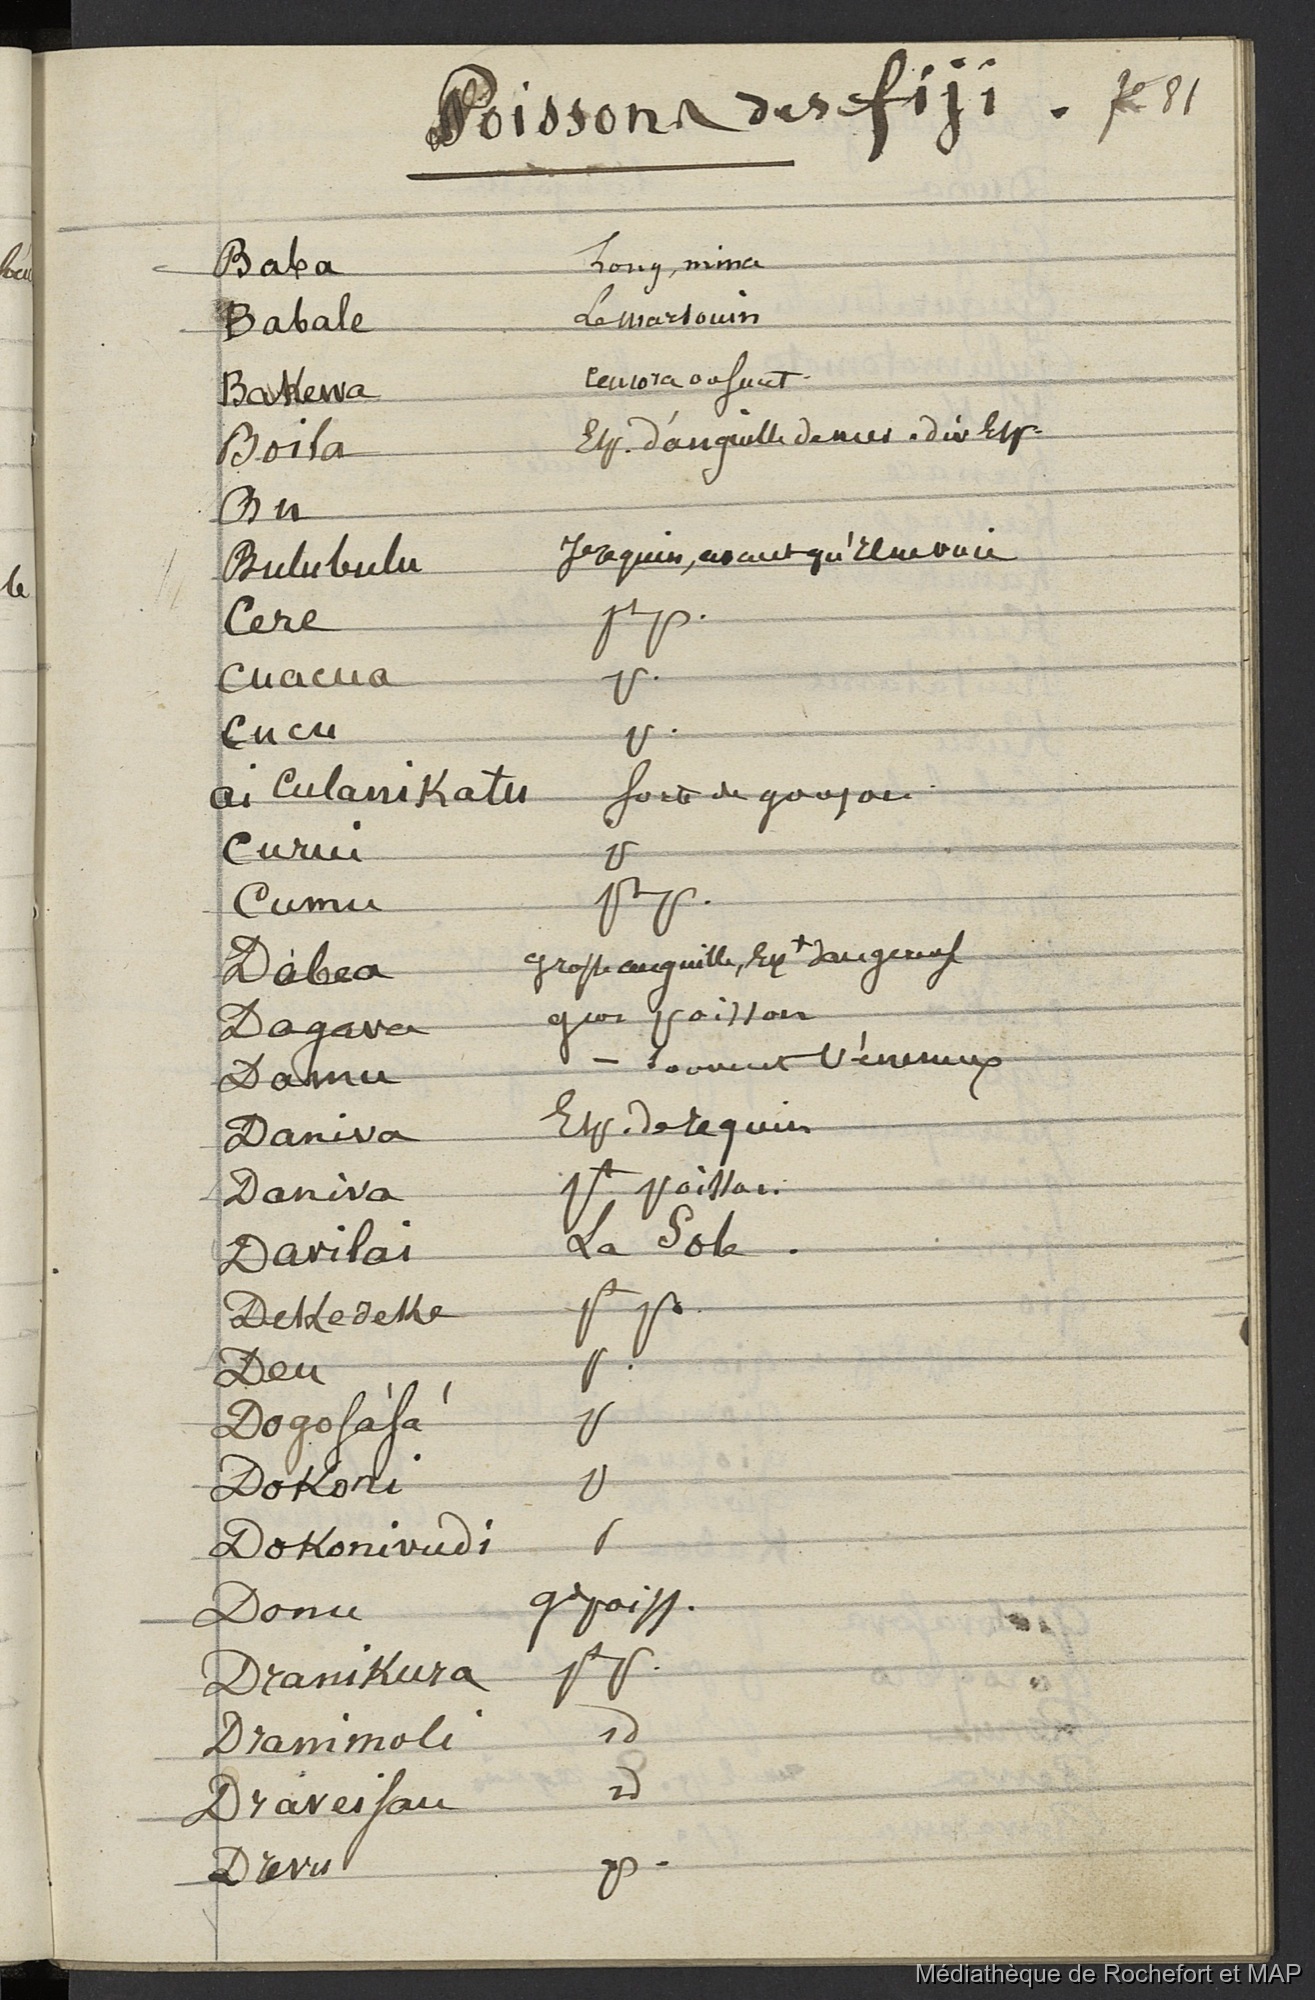 Poissons des fiji . 81
Baba long, mince
Babale Le marsouin
BaKewa
Boila Esp. d'anguille de mer . div Esp.
Bu
Bulubulu requin, avant qu'il ne voie
Cere pt p.
Cuacua p.
Cucu p.
ai CulaniKatu sorte de goujon
Curui p
Cumu pt p.
Dabea grosse anguille, Expt dangereuse
Dagava gros poisson
Damu – souvent vénéneux
Daniva Esp. de requin
Daniva pt poisson.
Davilai La Sole .
DeKedeKe pt p.
Deu p.
Dogosásá p
DoKoni p
DoKonivudi
Donu gd poiss.
DraniKura pt p.
Dranimoli id
Draveisau id
Drevu p.
Médiathèque de Rochefort et MAP